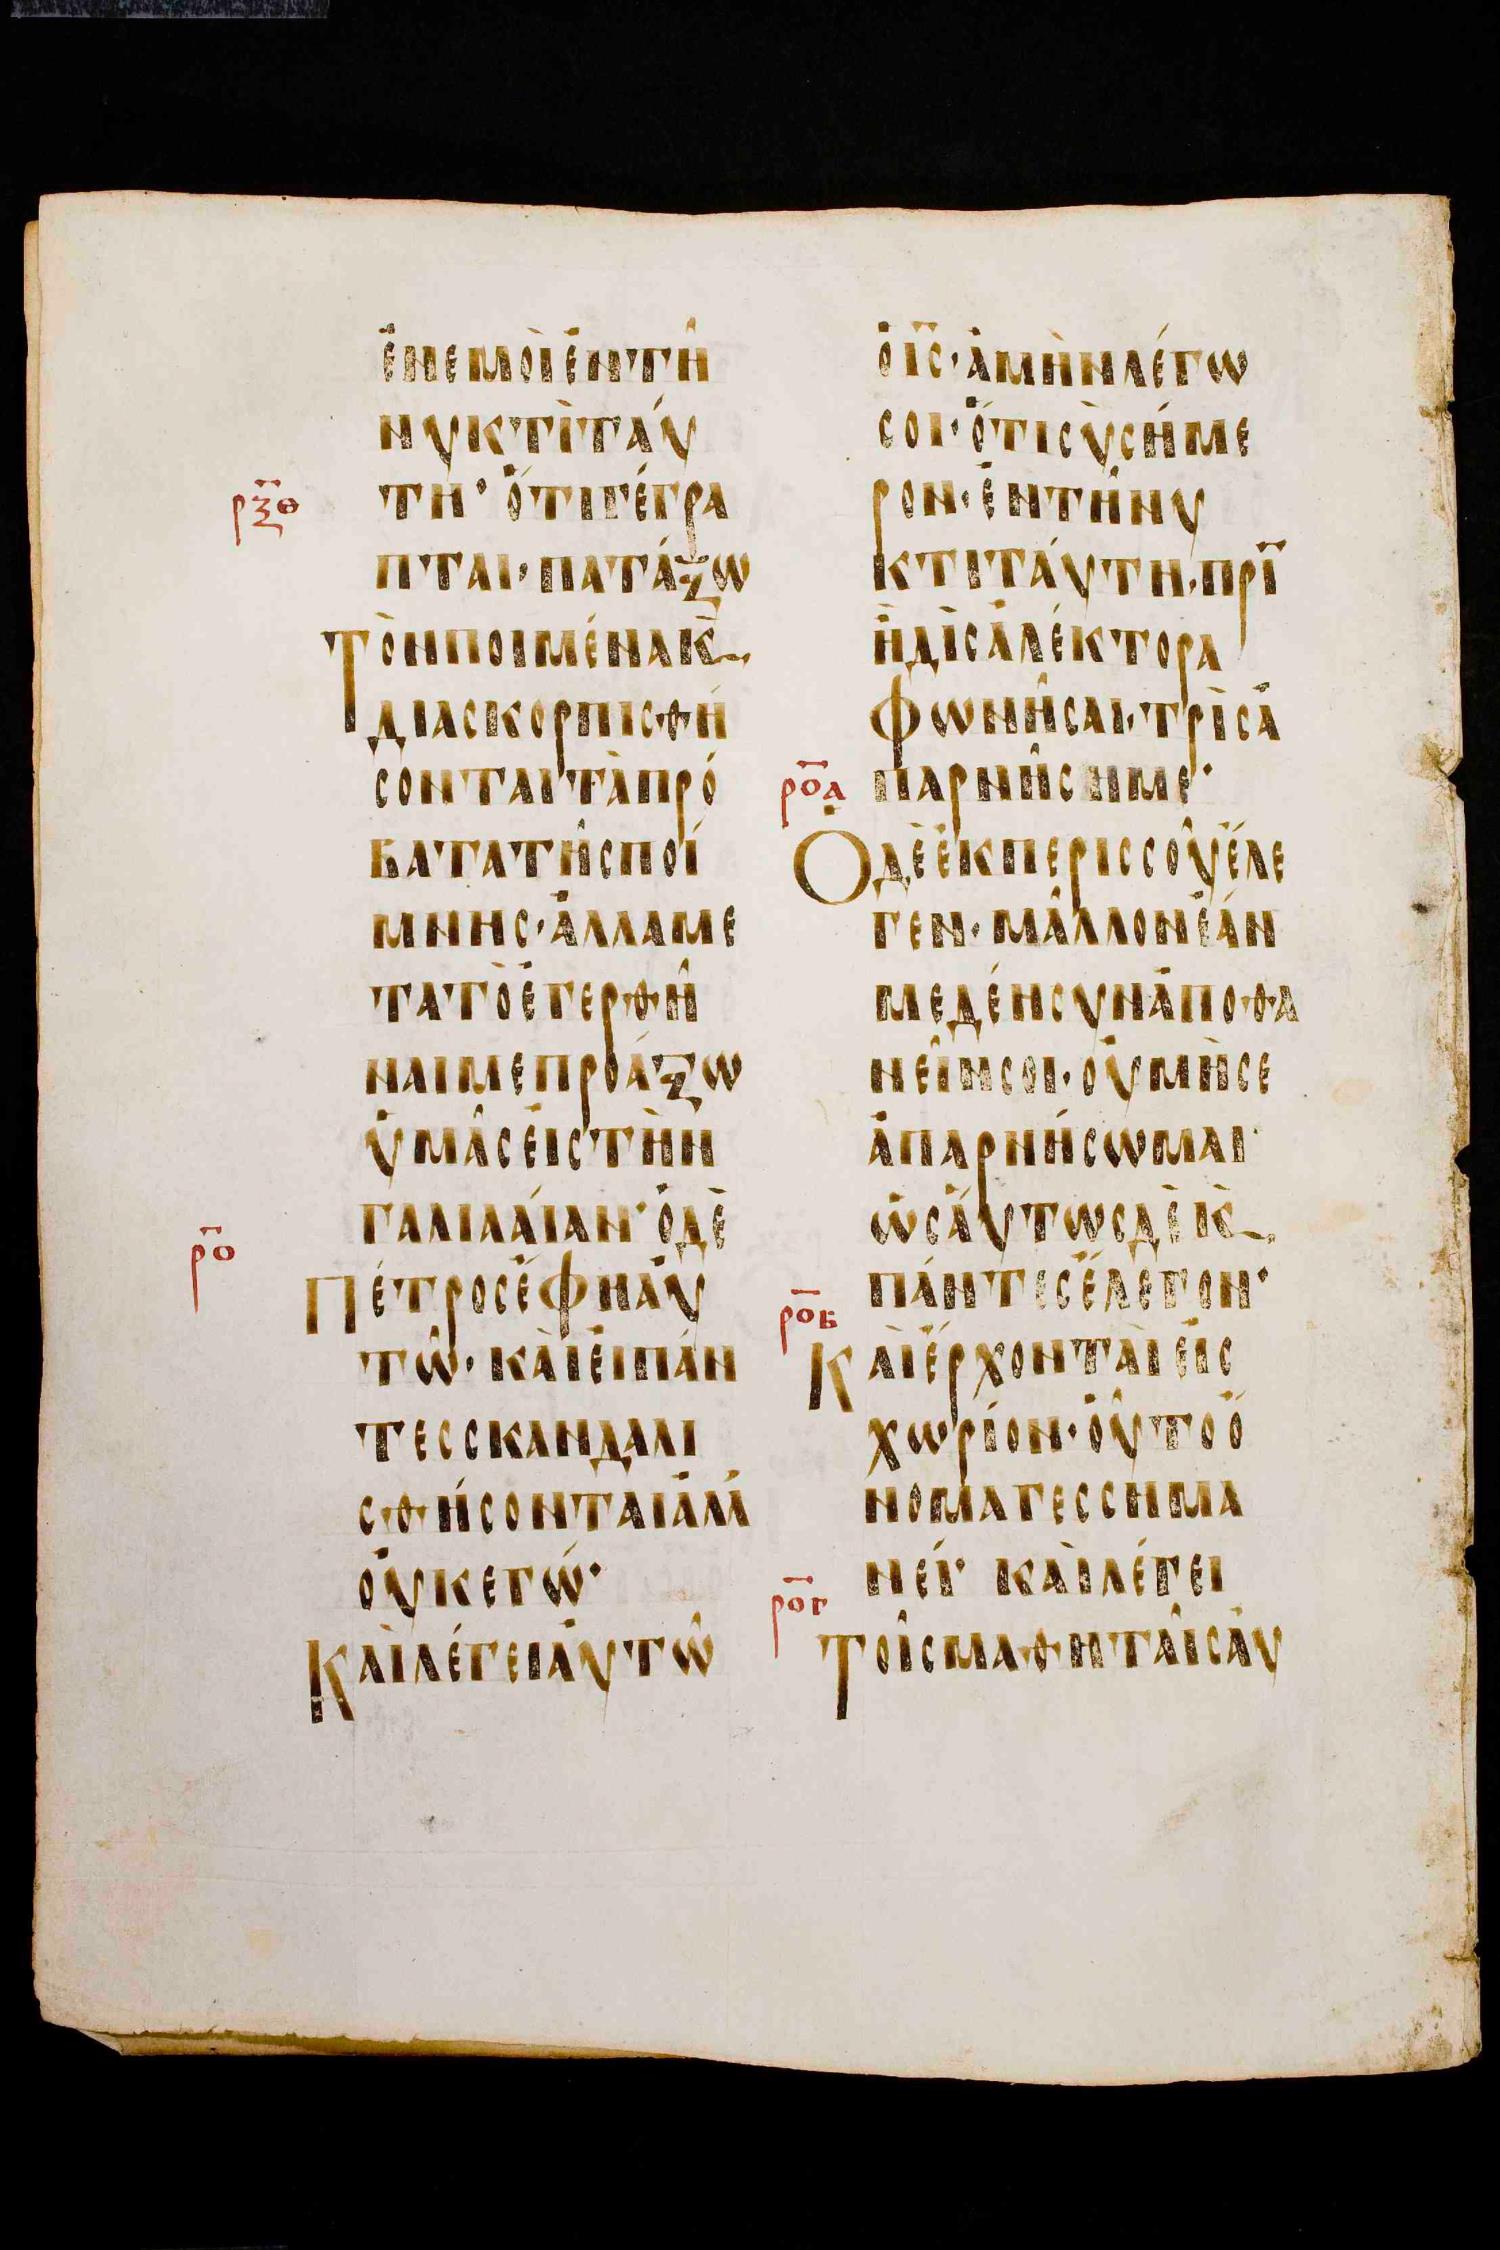 ἐνεμοὶἐντῆ
νυκτὶταύ
ρξθ
τη· ὅτιγέγρα
πται· πατάξω
Τὸνποιμένακ̀
διασκορπισθή
σονταιτὰπρό
βατατῆςποί
μνης· ἀλλαμε
τατὸἐγερθῆ
ναιμεπροάξω
ὑμᾶςεἰςτὴν
γαλιλαίαν· ὁδὲ
ρο
Πέτροςἔφηαὐ
τῶ· καὶεἰπάν
τεςσκανδαλι
σθήσονταιἀλλ
οὐκεγώ·
Καὶλέγειαὐτῶ
ὁις· ἀμὴνλέγω
σοι· ὅτισὺσήμε
ρον· ἐντῆνυ
κτιταύτη· πρϊ
ἢδὶςἀλέκτορα
φωνῆσαι· τρὶςἀ
ροα
παρνήσημε·
Ὁδὲἐκπερισσοῦἔλε
γεν· μᾶλλονἐάν
μεδέηςυναποθα
νεῖνσοι· οὐμήσε
ἀπαρνήσωμαι·
ὡςἀύτωςδὲκ̀
πάντεςἔλεγον·
ροβ
Καὶἔρχονταὶεἰς
χωρίον· οὗτοὄ
νομαγεσσημα
νεί· καὶλέγει
ρογ
Τοῖςμαθηταῖςαὐ